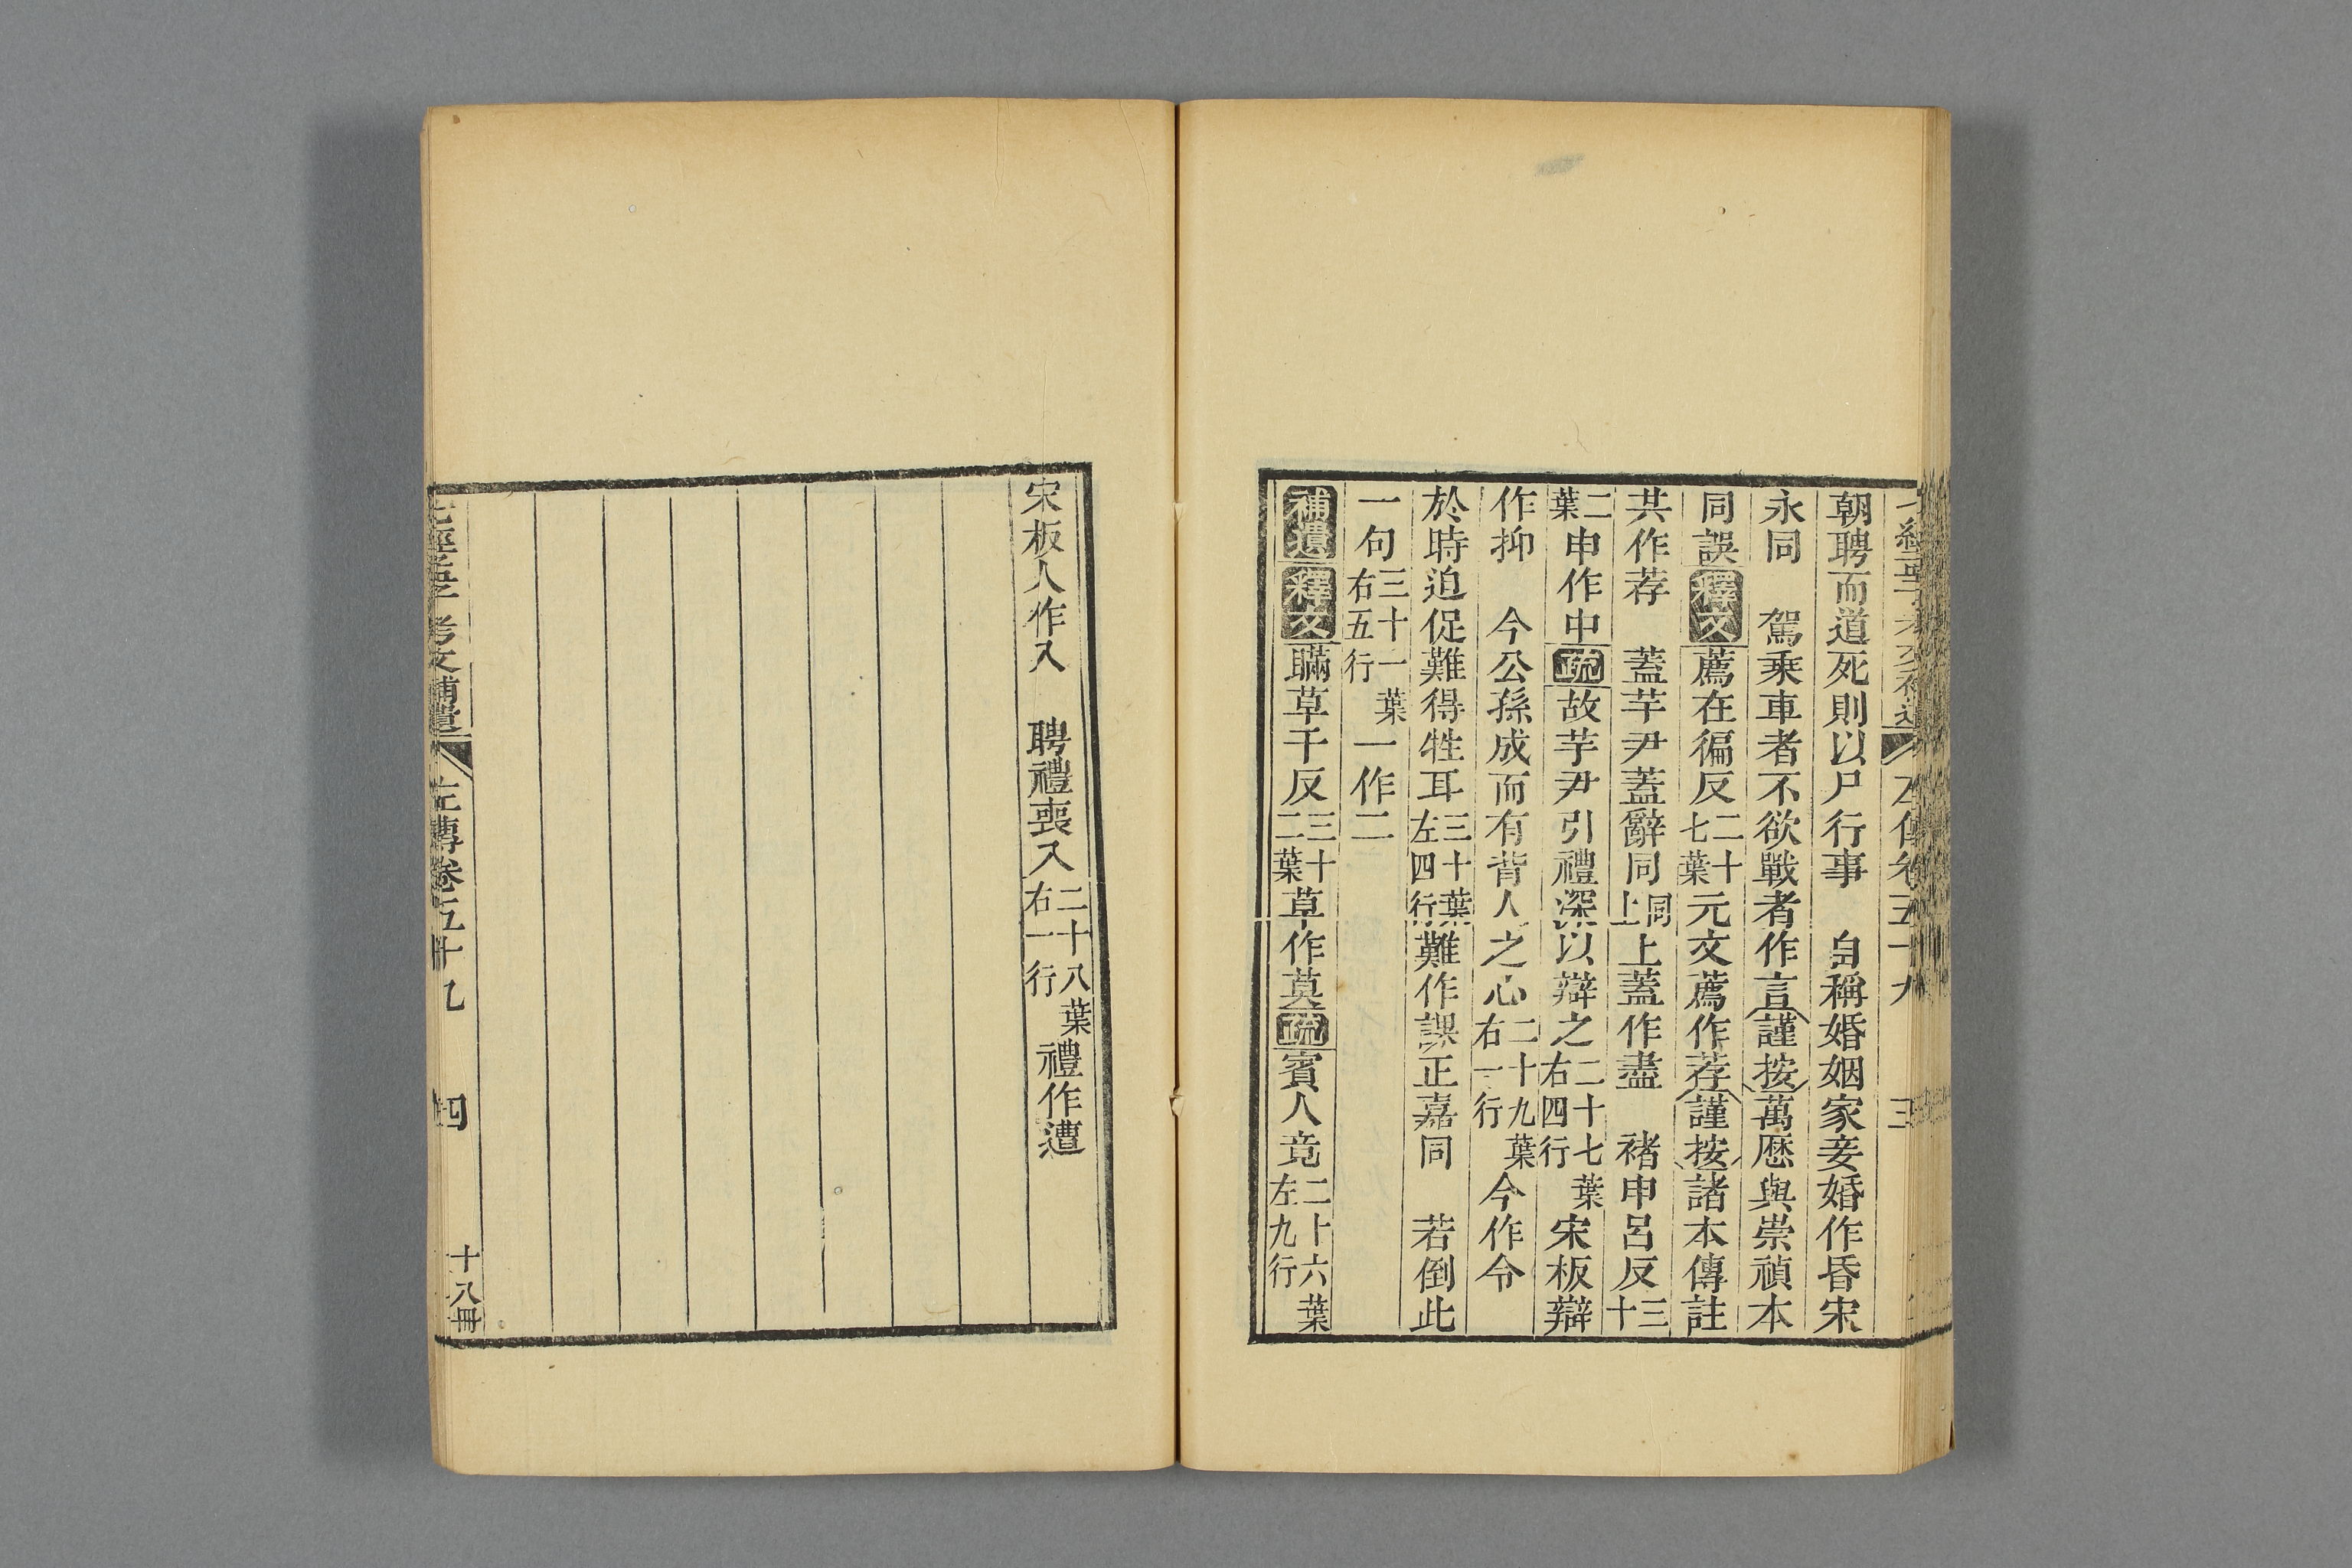 朝聘而道死則以尸行事　自稱婚姻家妾婚作昏宋
永同　駕乘車者不欲戰者作言謹按萬歷與崇禎本
同誤釋文薦在徧反二十七葉元文薦作荐謹按諸本傳註
共作荐　蓋芋尹蓋辭同同上上蓋作盡　褚申呂反三十
二葉申作中疏故芋尹引禮深以辯之二十七葉右四行宋板辯
作抑　今公孫成而有背人之心二十九葉右一行今作令
於時迫促難得牲耳三十葉左四行難作課正嘉同　若倒此
一句三十一葉右五行一作二
補遺釋文瞞草干反三十二葉草作莫疏賓人竟二十六葉左九行
宋板人作入　聘禮喪入二十八葉右一行禮作遭
七經孟子考文補遺　左傳卷五十九　四　十八冊